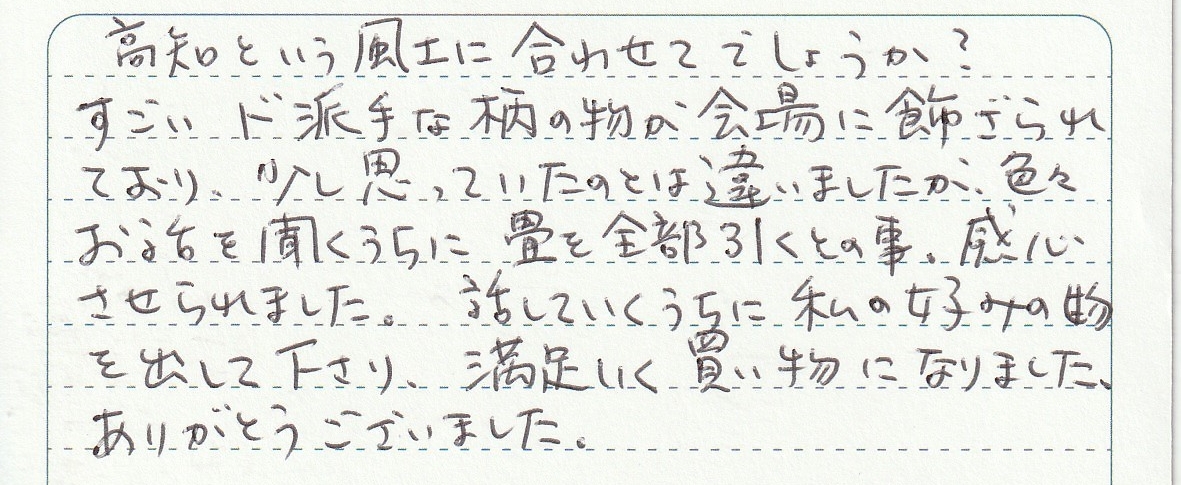 高知という風土に合わせてでしょうか?
すごいド派手な柄の物が会場に飾ざられ
ており、少し思っていたのとは違いましたが、色々
お話を聞くうちに畳を全部引くとの事、感心
させられました。話していくうちに私の好みの物
を出して下さり、満足いく買い物になりました、
ありがとうございました。